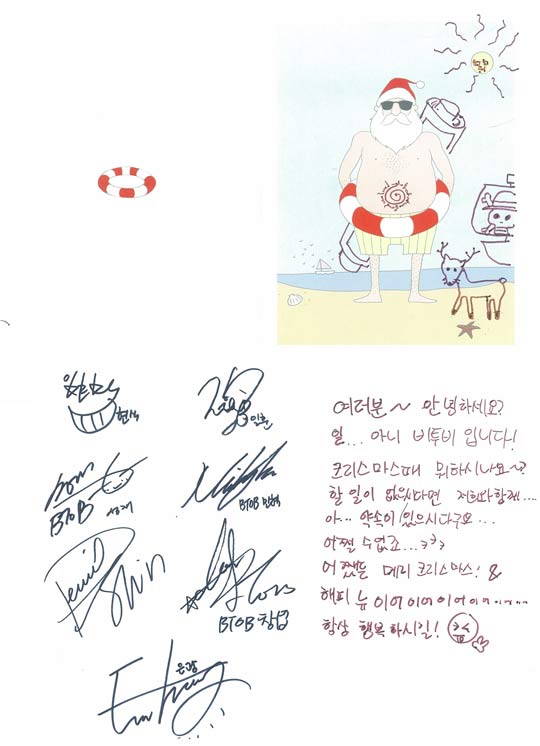 현식
일훈
BTOB 성재
BTOB 민혁
BTOB 창섭
은광
여러분~ 안녕하세요?
일... 아니 비투비 입니다!
크리스마스때 뭐하시나요~?
할 일이 없으시다면 저희와함께...
아... 약속이 있으시다구요...
어쩔 수 없죠... ㅋㅋㅋ
어쨌든 메리 크리스마스! &
해피 뉴 이어이어이어이어이어...
항상 행복하시길!